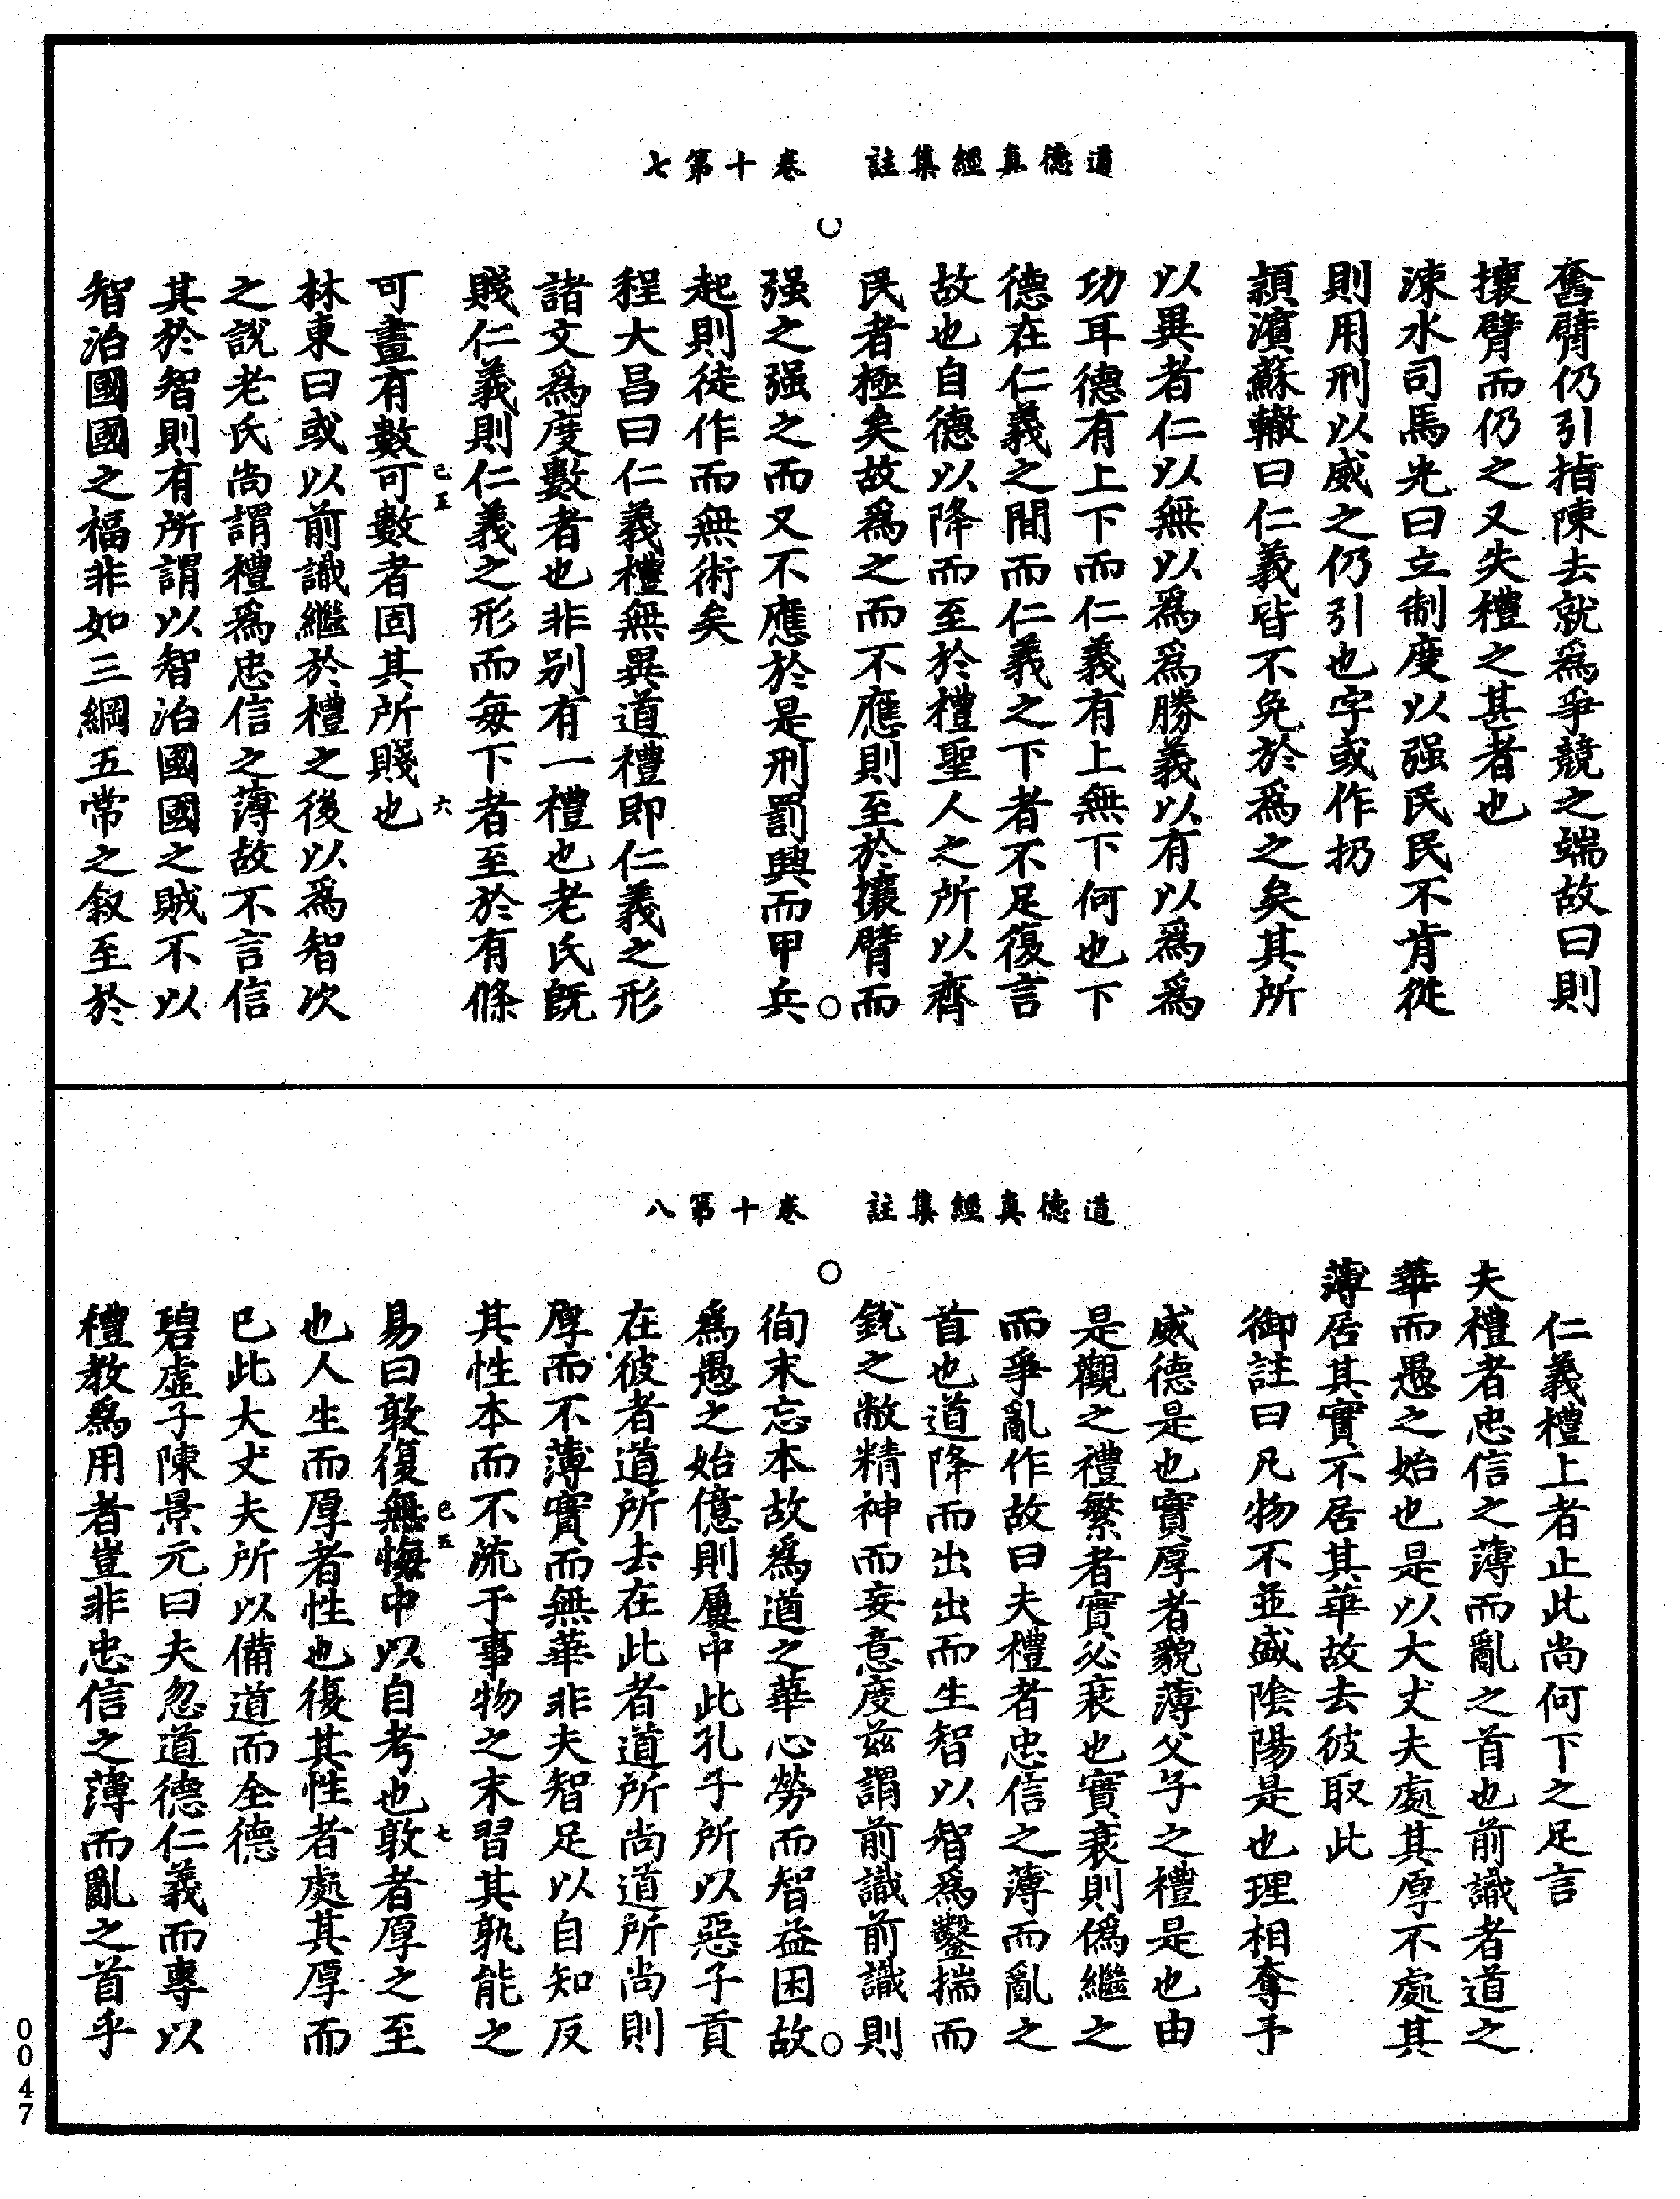 道德真經集註　卷十第七
奮臂仍引指陳去就爲爭競之端故曰則
攘臂而仍之又失禮之甚者也
涑水司馬光曰立制度以强民民不肯從
則用刑以威之仍引也字或作扔
潁濱蘇轍曰仁義皆不免於爲之矣其所
以異者仁以無以爲爲勝義以有以爲爲
功耳德有上下而仁義有上無下何也下
德在仁義之間而仁義之下者不足復言
故也自德以降而至於禮聖人之所以齊
民者極矣故爲之而不應則至於攘臂而
强之强之而又不應於是刑罰興而甲兵
起則徒作而無術矣
程大昌曰仁義禮無異道禮即仁義之形
諸文爲度數者也非别有一禮也老氏旣
賤仁義則仁義之形而每下者至於有條
己五　六
可畫有數可數者固其所賤也
林東曰或以前識繼於禮之後以爲智次
之說老氏尚謂禮爲忠信之薄故不言信
其於智則有所謂以智治國國之賊不以
智治國國之福非如三綱五常之叙至於
道德真經集註　卷十第八
仁義禮上者止此尚何下之足言
夫禮者忠信之薄而亂之首也前識者道之
華而愚之始也是以大丈夫處其厚不處其
薄居其實不居其華故去彼取此
御註曰凡物不並盛陰陽是也理相奪予
威德是也實厚者貌薄父子之禮是也由
是觀之禮繁者實必衰也實衰則僞繼之
而爭亂作故曰夫禮者忠信之薄而亂之
首也道降而出出而生智以智爲鑿揣而
銳之敝精神而妄意度兹謂前識前識則
徇末忘本故爲道之華心勞而智益困故
爲愚之始億則屢中此孔子所以惡子貢
在彼者道所去在此者道所尚道所尚則
厚而不薄實而無華非夫智足以自知反
其性本而不流于事物之末習其孰能之
己五　七
易曰敦復無悔中以自考也敦者厚之至
也人生而厚者性也復其性者處其厚而
已此大丈夫所以備道而全德
碧虛子陳景元曰夫忽道德仁義而專以
禮教爲用者豈非忠信之薄而亂之首乎
0047